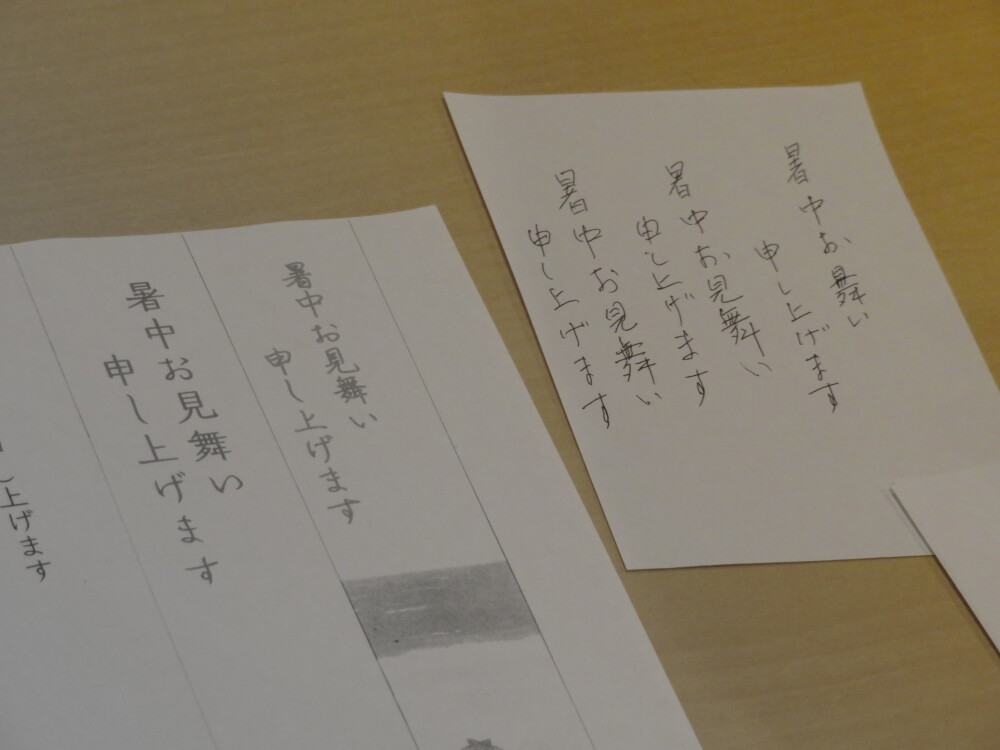 暑中お舞い
申し上げます
暑中お見舞い
申し上げます
暑中お見舞い
申し上げます
暑中お見舞い
申し上げます
暑中お見舞い
申し上げます
し上げます